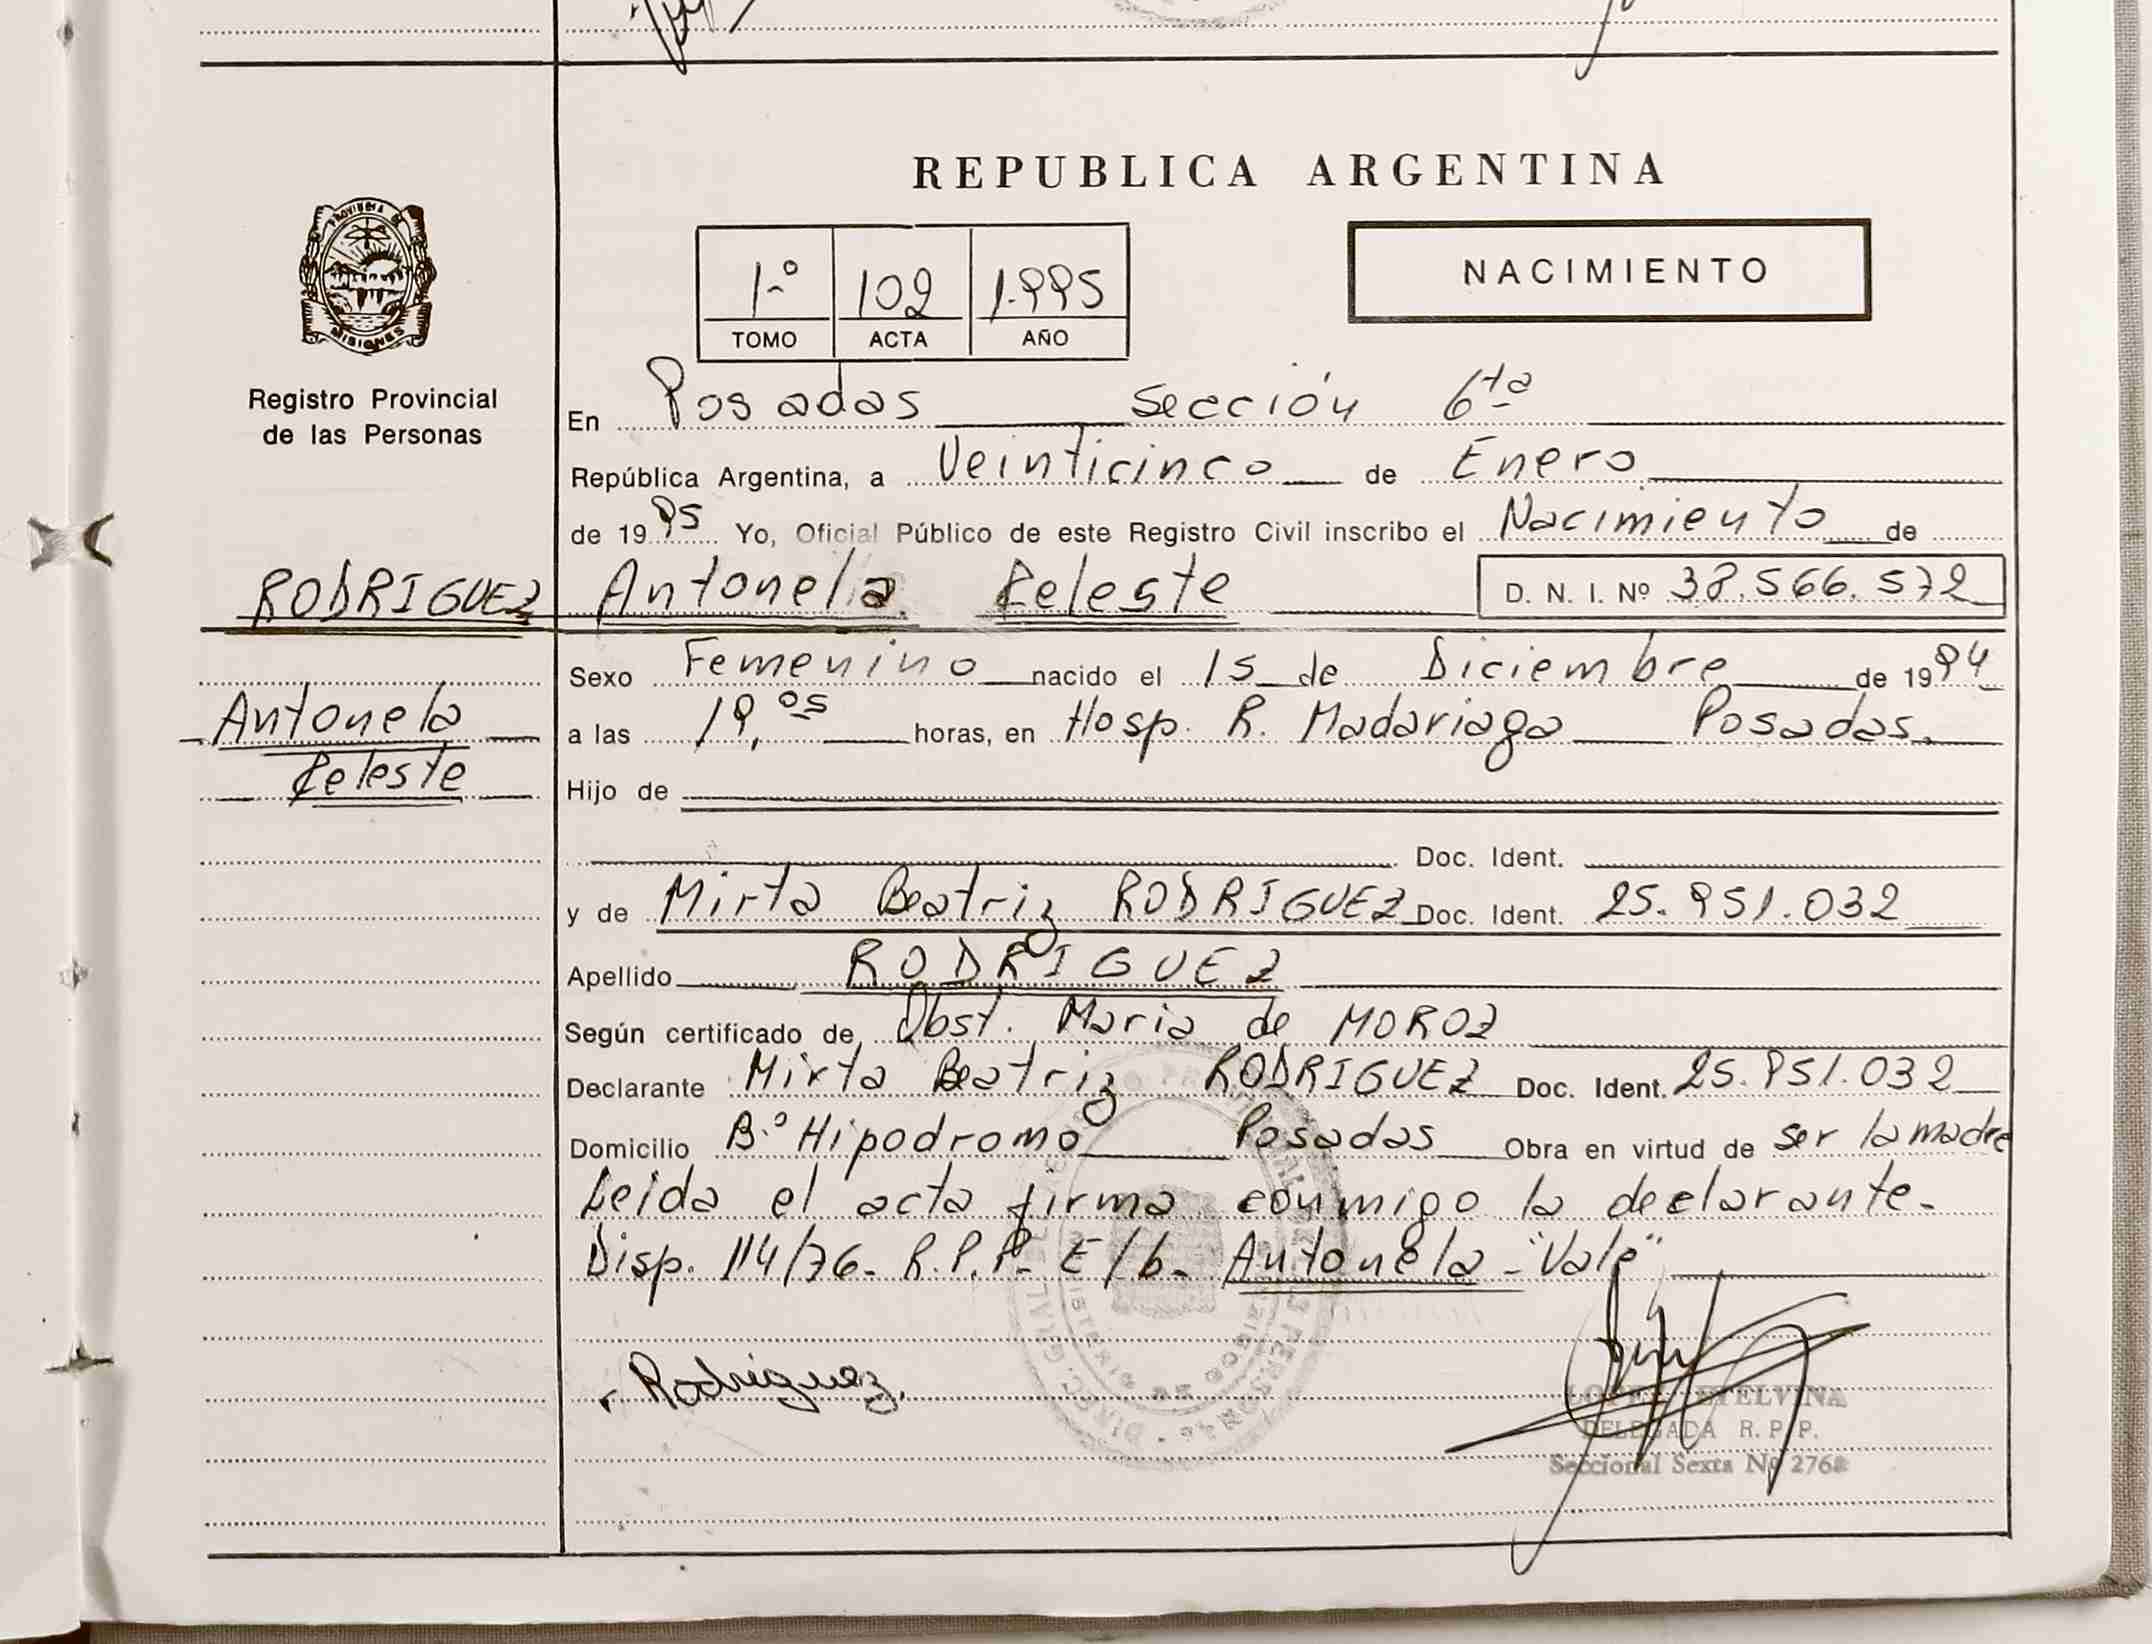 REPUBLICA ARGENTINA
PROVINCIA DE
MISIONES
Registro Provincial
de las Personas
1º TOMO
102 ACTA
1.995 AÑO
NACIMIENTO
En Posadas Sección 6ta
República Argentina, a Veinticinco de Enero
de 1995 Yo, Oficial Público de este Registro Civil inscribo el Nacimiento de
RODRIGUEZ Antonela Celeste D. N. I. Nº 38.566.572
Sexo Femenino nacido el 15 de Diciembre de 1994
Antonela
Celeste
a las 19,05 horas, en Hosp. R. Madariaga Posadas.
Hijo de
Doc. Ident.
y de Mirta Beatriz RODRIGUEZ Doc. Ident. 25.951.032
Apellido RODRIGUEZ
Según certificado de Obst. Maria de MOROZ
Declarante Mirta Beatriz RODRIGUEZ Doc. Ident. 25.951.032
Domicilio B.º Hipodromo Posadas Obra en virtud de ser la madre
Leida el acta firma conmigo la declarante.
Disp. 114/76. R.P.P. E/b. Antonela - "Vale"
Rodriguez.
LOPEZ ETELVINA
DELEGADA R. P. P.
Seccional Sexta Nº 276